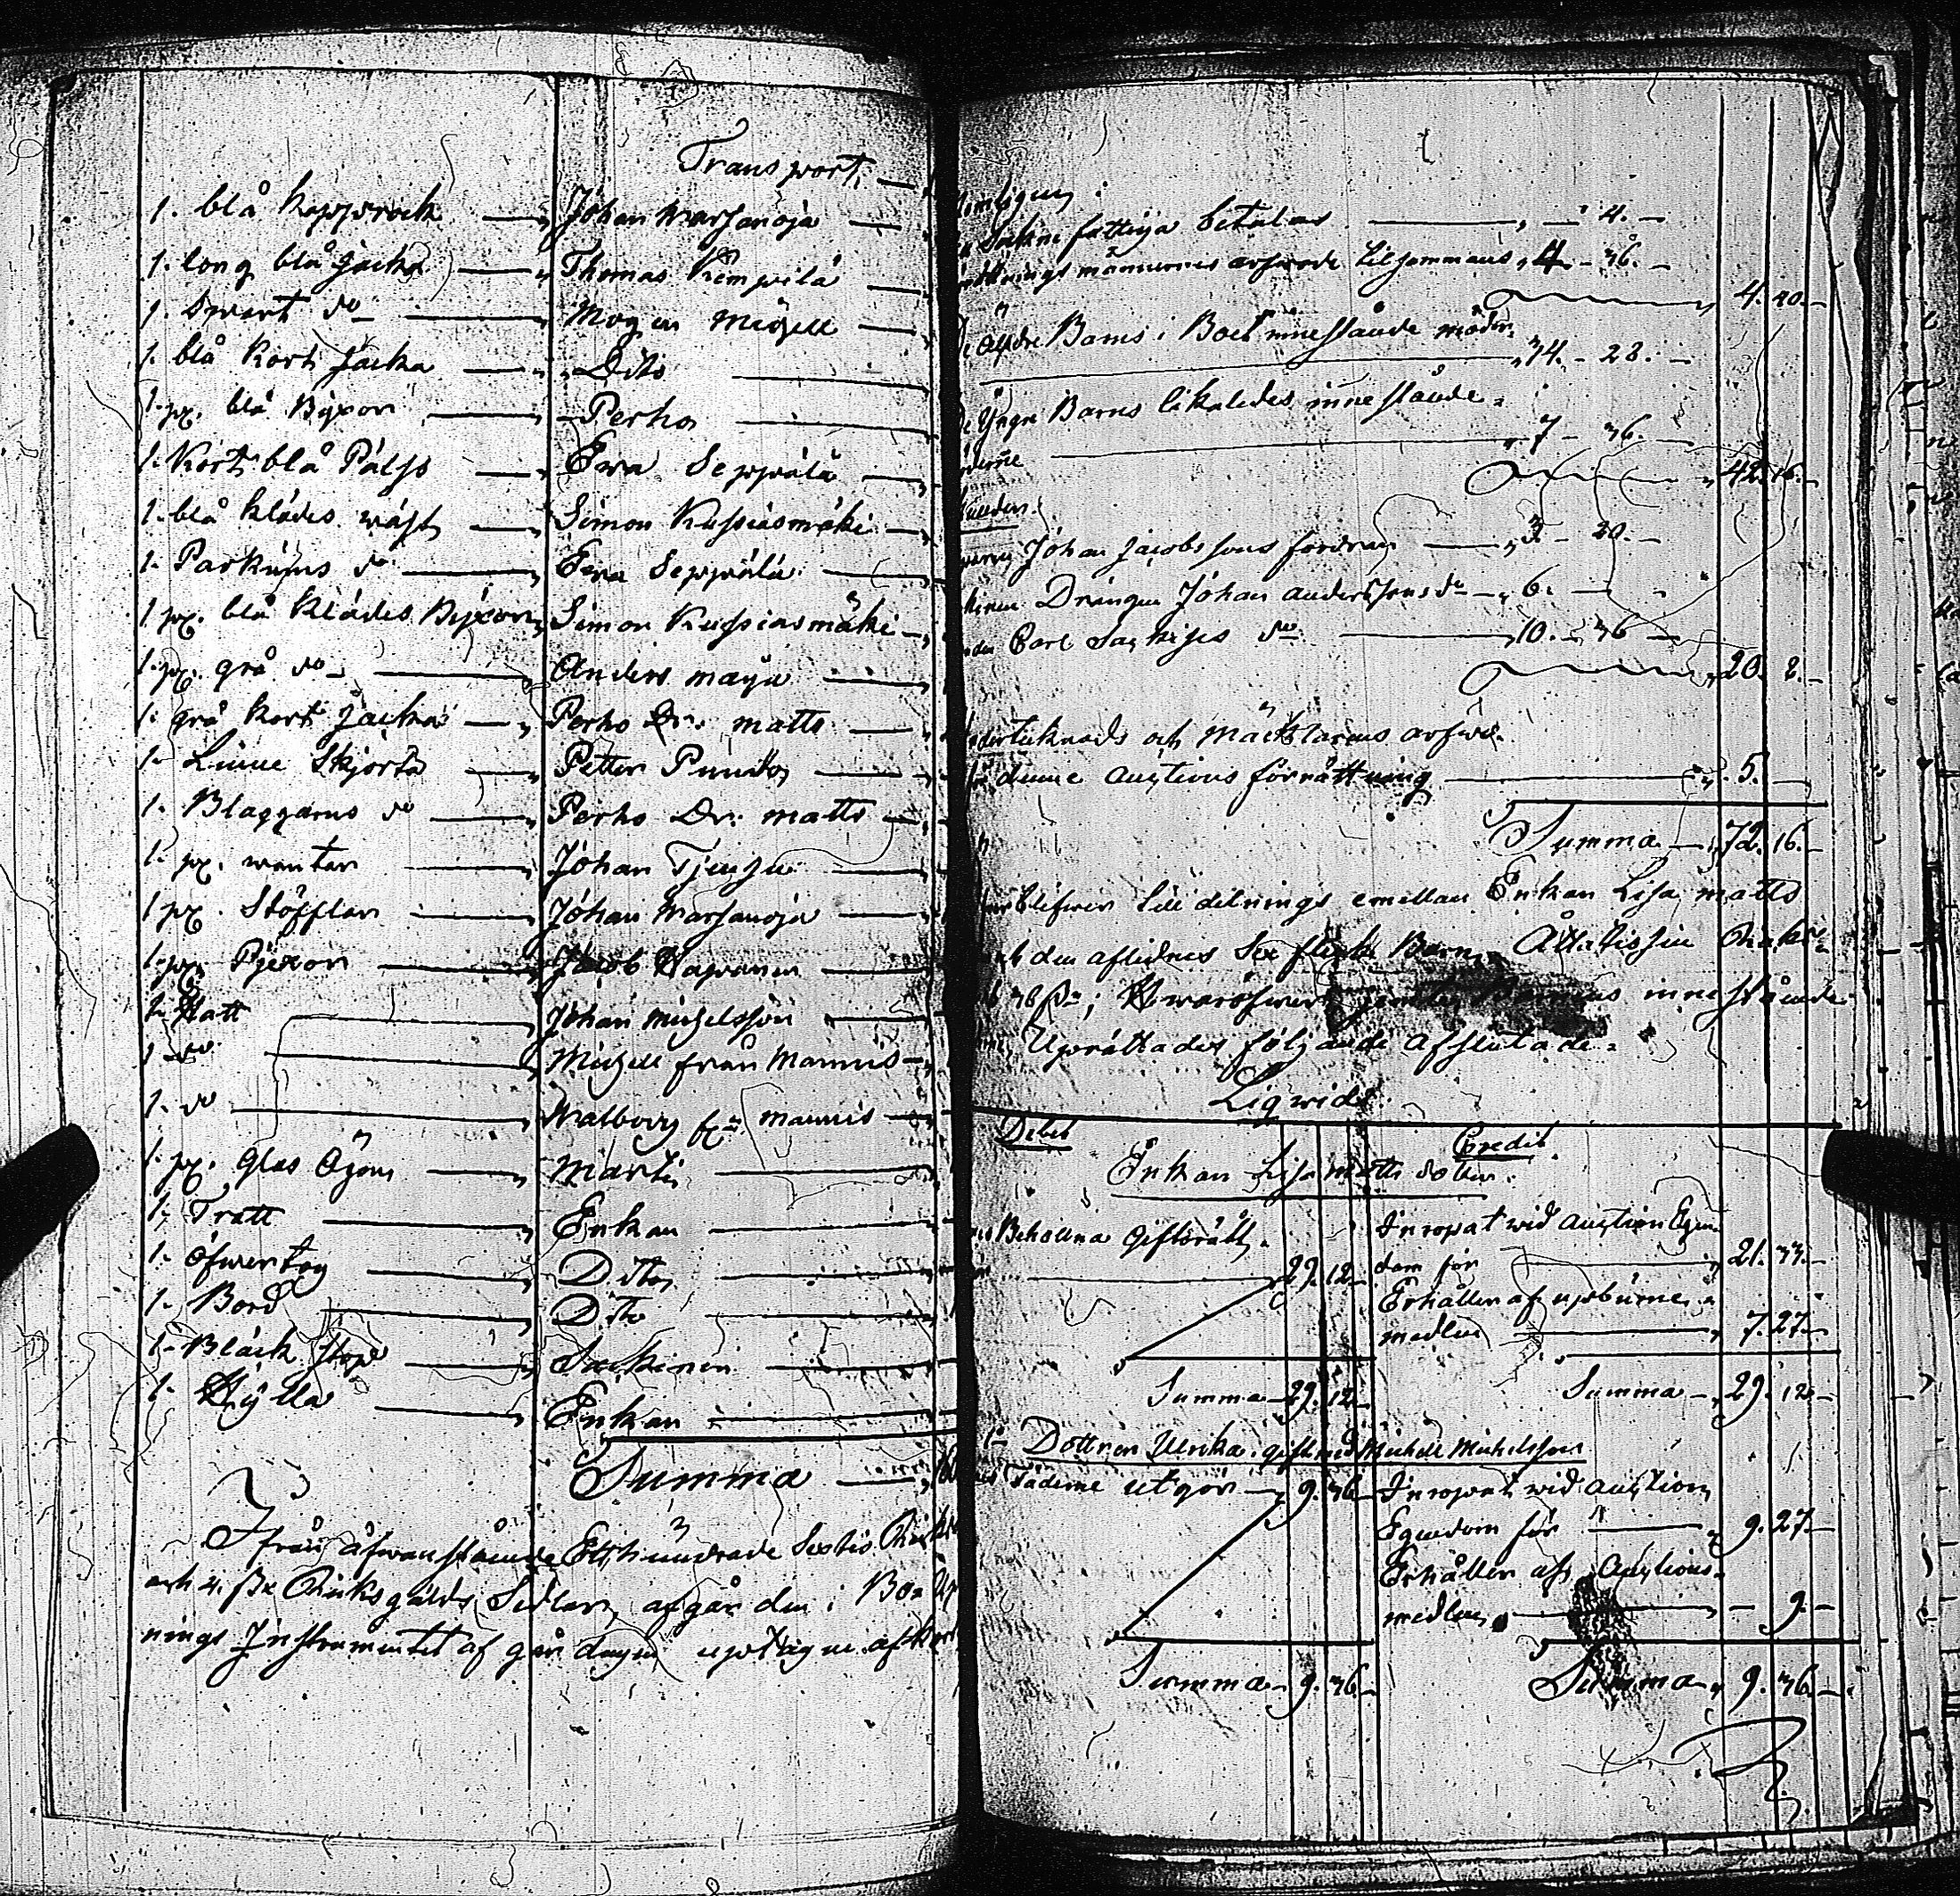 Transport
1. blå Kapprock Johan Marjanoja
1. long blå Jacka Thomas Kimpilä
1. Swart do
1. blå kort Jacka Dito
1. pr. blå Byxor Perho
1. Kort blå Päls Ewa Seppälä
1. blå klädes wäst Simon Kussiasmäki
1. Parkums do Ewa Seppälä
1 pr. blå klädes Byxor Simon Kussiasmäki
1. pr. grå do Anders
1. grå kort Jacka Perho Dr: Matts
1. Linne Skjorta Petter
1. Blaggarns do Perho Dr: Matts
1. pr. wantar Johan
1 pr. Stöfflar Johan Marjanoja
1. pr. Pjexor Jacob
1. Hatt Johan Michelsson
1 do Michell från Mannis
1. do Walborg fr: Mannis
1. pr. Glas Ögon Martin
1. Tratt Enkan
1. Öfwertog Dito
1. Bord Dito
1. Bläck stop
1. Hylla Enkan
Summa
Ifrån åfwanstående Etthundrade Sextio
och 4. sk Riksgälds Sedlar, afgår den i Bo
nings Instrumentet af går dagen uptagne
Sockne fattiga betalas 4. –
männernes arfwode tilsammans 4 – 36. –
4. 40. –
Äldre Barns i Boet innestående möder
34. – 28. –
Yngre Barns likaledes innestående
7 – 36. –
42. 16. –
Johan Jacobssons fordran 3 – 20. –
Drängen Johan Anderssons do 6. –
Carl do 10. – 36 –
20. 8. –
och Mäklarens arfwo
denne Auctions förrättning 5. –
Summa 72. 16. –
blifwer till delnings emellan Enkan Lisa Matts
den aflidnes Sex Barn Åttatisju
innestående
Upprättades följande afslutade
Liqwid.
Debet Credit
Enkan Lisa Matts dotter.
Behållna Giftorätt Inropat wid Auction Egen
29. 12. – dom för 21. 33. –
Erhåller af upburne
medlen 7. 27. –
Summa 29. 12. – Summa 29. 12. –
Dottren Ulrika. gift med Michell Michelsson
Fäderne utgör 9. 36 Inropat wid Auction
Egendom för 9. 27. –
Erhåller af Auctions
medlen – 9. –
Summa 9. 36. – Summa 9. 36. –